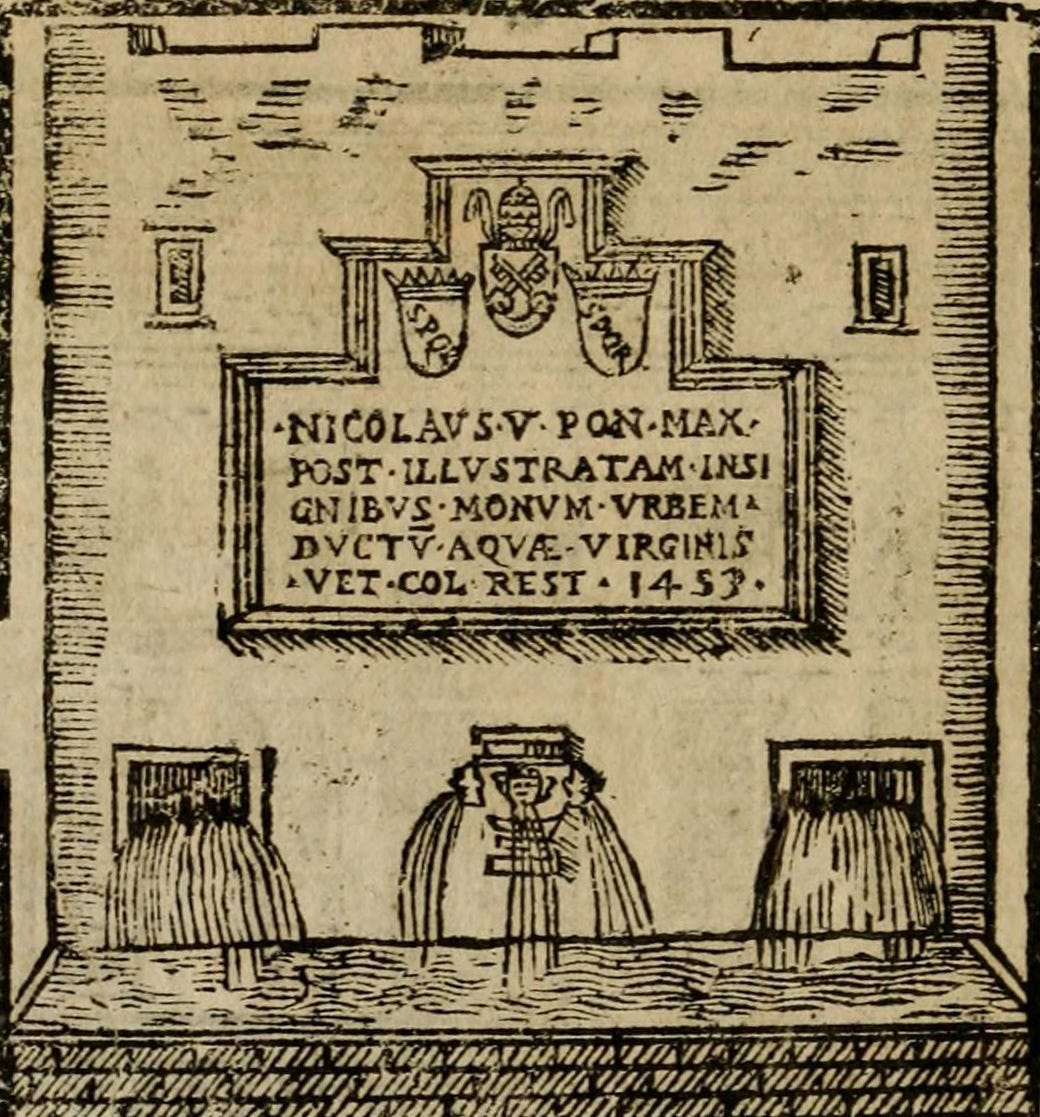 SPQR
SPQR
·NICOLAVS·V·PON·MAX·
POST·ILLVSTRATAM·INSI
GNIBVS·MONVM·VRBEM·
DVCTV̄·AQVÆ·VIRGINIS
·VET·COL·REST·1453·